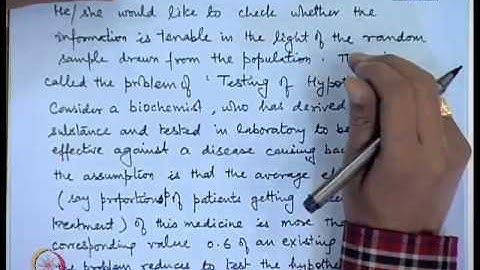 He/she would like to check whether the
information is tenable in the light of the random
sample drawn from the population.
called the problem of 'Testing of Hypot
Consider a biochemist, who has derived
substance and tested in laboratory to be
effective against a disease causing bac
the assumption is that the average e
(say proportions of patients getting
treatment) of this medicine is more tha
corresponding value 0.6 of an existing
the problem reduces to test the hypothe